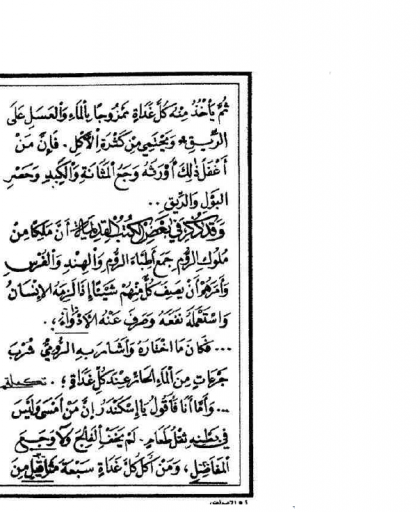 ثُمَّ يَأْخُذُ مِنْهُ كُلَّ غَدَاةٍ مَمْزُوجًا بِالْمَاءِ وَالْعَسَلِ عَلَى
الرِّيقِ وَيَحْتَمِي مِنْ كَثْرَةِ الْأَكْلِ . فَإِنَّ مَنْ
أَغْفَلَ ذٰلِكَ أَوْرَثَهُ وَجَعَ الْمَثَانَةِ وَالْكَبِدِ وَحَصْرِ
البَوْلِ وَالرِّيقِ ..
وَقَدْ ذُكِرَ فِي بَعْضِ الْكُتُبِ أَنَّ مَلِكًا مِنْ
مُلُوكِ الرُّومِ جَمَعَ أَطِبَّاءَ الرُّومِ وَالْهِنْدِ وَالْفُرْسِ
وَأَمَرَهُمْ أَنْ يَصِفَ كُلٌّ مِنْهُمْ شَيْئًا إِذَا لَزِمَهُ الْإِنْسَانُ
وَاسْتَعْمَلَهُ نَفَعَهُ وَصَرَفَ عَنْهُ الْأَدْوَاءَ ؛ .
... فَكَانَ مَا اخْتَارَهُ وَأَشَارَ بِهِ الرُّومِيُّ شُرْبَ
جَرَعَاتٍ مِنَ الْمَاءِ الْحَارِّ عِنْدَ كُلِّ غَدَاةٍ ؛ .
... وَأَمَّا أَنَا فَأَقُولُ يَا إِسْكَنْدَرُ إِنَّ مَنْ أَمْسَى وَلَيْسَ
فِي بَطْنِهِ ثِقْلُ طَعَامٍ . لَمْ يَخَفِ الْفَالِجَ وَلَا وَجَعَ
الْمَفَاصِلِ ، وَمَنْ أَكَلَ كُلَّ غَدَاةٍ سَبْعَةَ مَثَاقِيلَ مِنَ